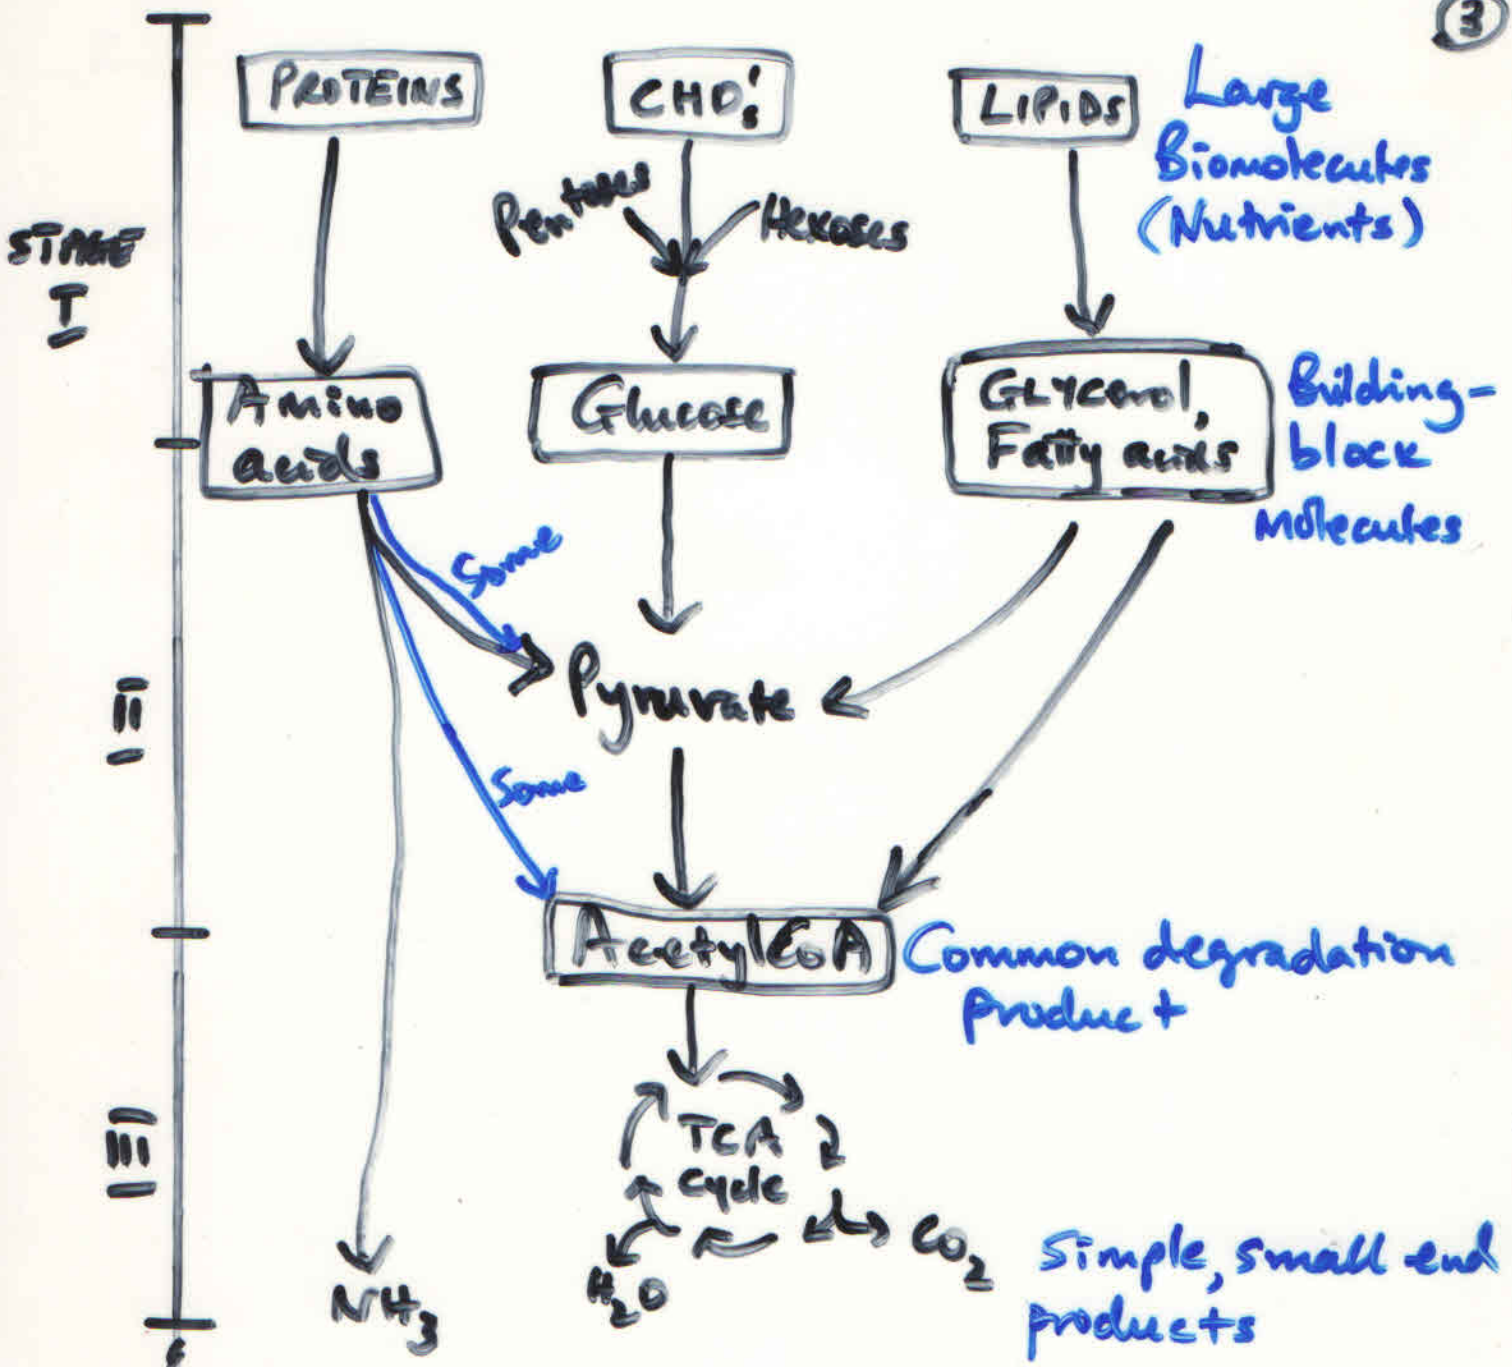 3
PROTEINS
CHO's
LIPIDS
Large
Biomolecules
(Nutrients)
STAGE
I
Pentoses
Hexoses
Amino
acids
Glucose
Glycerol,
Fatty acids
Building-
block
molecules
Some
II
Pyruvate
Some
Acetyl CoA
Common degradation
product
III
TCA
cycle
CO2
H2O
NH3
Simple, small end
products